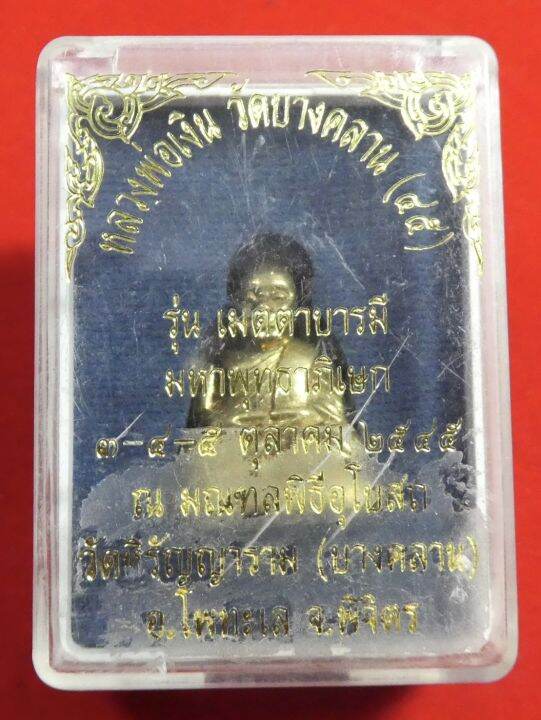 หลวงพ่อเงิน วัดบางคลาน (๔๕)
รุ่น เมตตาบารมี
มหาพุทธาภิเษก
๓-๔-๕ ตุลาคม ๒๕๔๕
ณ มณฑลพิธีอุโบสถ
วัดหิรัญญาราม (บางคลาน)
อ.โพทะเล จ.พิจิตร